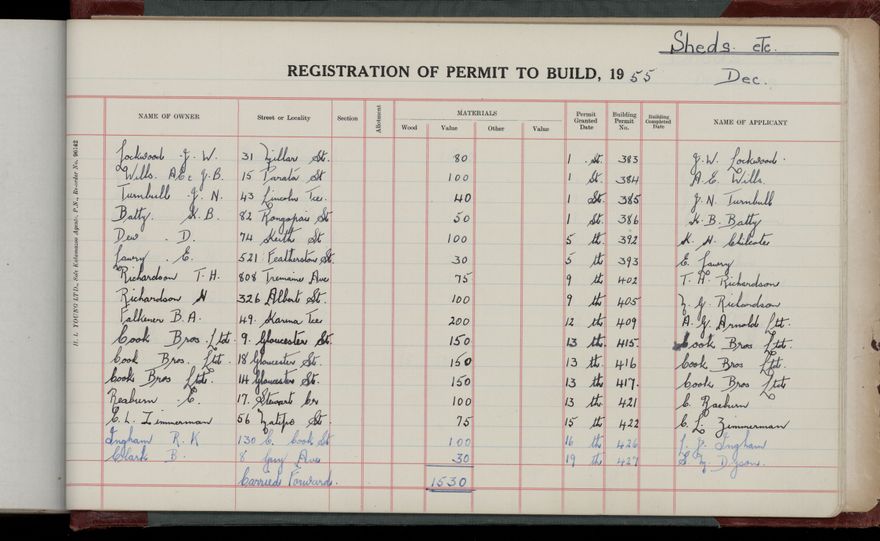 Sheds. etc.
REGISTRATION OF PERMIT TO BUILD, 1955 Dec.
NAME OF OWNER Street or Locality Section Allotment MATERIALS Permit Granted Date Building Permit No. Building Completed Date NAME OF APPLICANT
Wood Value Other Value
H. L. YOUNG LTD., Sole Kalamazoo Agents, P.N., Re-order No. 96142
Lockwood J. W. 31 St. 80 1 st. 383 J. W. Lockwood.
Wills. A E & J. B. 15 Parata St 100 1 st 384 A. E. Wills.
Turnbull J. N. 43 Lincoln Tce. 40 1 St. 385 J. N. Turnbull
Batty. K. B. 82 Rongopai St 50 1 St. 386 K. B. Batty
Dew. D. 74 Keith St 100 5 th. 392 K. H. Chilcote
Lowry. E. 521 Featherston St. 30 5 th. 393 E. Lowry
Richardson T. H. 808 Tremaine Ave 75 9 th 402 T. H. Richardson
Richardson N 326 Albert St. 100 9 th 405 Richardson
Falkener B. A. 49. Karma Tce 200 12 th 409 A. G. Arnold Ltd.
Cook Bros. Ltd. 9. Gloucester St. 150 13 th 415. Cook Bros Ltd.
Cook Bros. Ltd. 18 Gloucester St. 150 13 th. 416 Cook Bros Ltd.
Cook Bros Ltd. 14 Gloucester St. 150 13 th 417. Cook Bros Ltd
Raeburn. C. 17. Stewart Cr 100 13 th 421 C. Raeburn
C. L. Zimmerman 56 St. 75 15 th 422 C. L. Zimmerman
Ingham R. K 130 C. Cook St 100 16 th 426 Ingham
Clark B. 8 Ave 30 19 th 427 Dyson.
Carried Forward. 1530